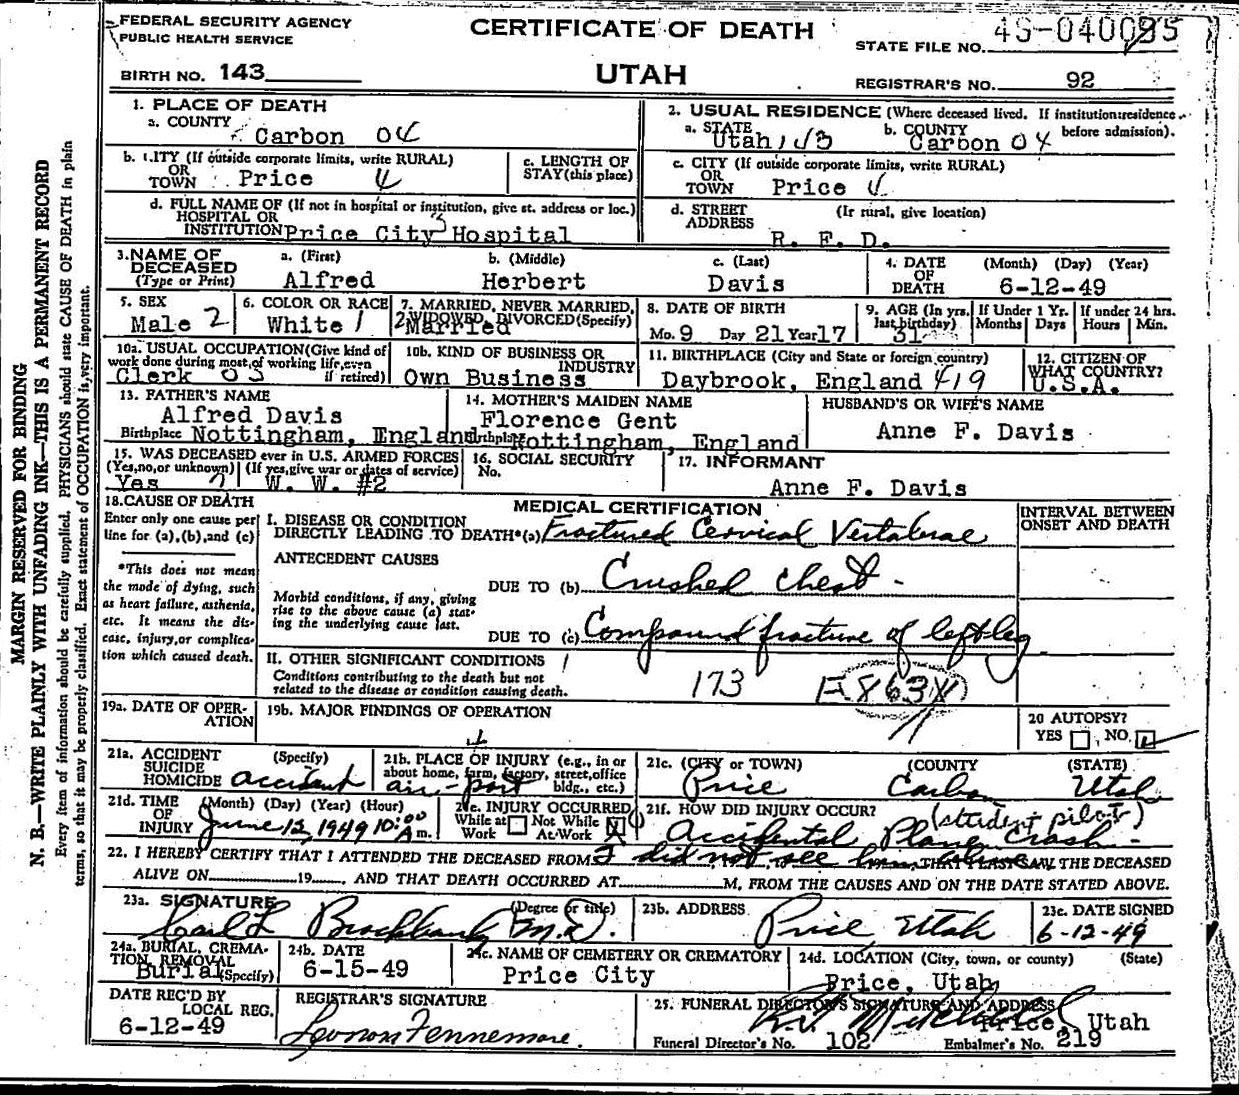 FEDERAL SECURITY AGENCY
PUBLIC HEALTH SERVICE
CERTIFICATE OF DEATH
STATE FILE NO.
BIRTH NO. 143
UTAH
REGISTRAR'S NO. 92
MARGIN RESERVED FOR BINDING
N. B.—WRITE PLAINLY WITH UNFADING INK—THIS IS A PERMANENT RECORD
Every item of information should be carefully supplied. PHYSICIANS should state CAUSE OF DEATH in plain
terms, so that it may be properly classified. Exact statement of OCCUPATION is very important.
1. PLACE OF DEATH
a. COUNTY
Carbon 04
2. USUAL RESIDENCE (Where deceased lived. If institution: residence
before admission).
a. STATE
Utah
b. COUNTY
Carbon 04
b. CITY (If outside corporate limits, write RURAL)
OR
TOWN Price 4
c. LENGTH OF
STAY (this place)
c. CITY (If outside corporate limits, write RURAL)
OR
TOWN Price
d. FULL NAME OF (If not in hospital or institution, give st. address or loc.)
HOSPITAL OR
INSTITUTION Price City Hospital
d. STREET
ADDRESS
(If rural, give location)
R. F. D.
3. NAME OF
DECEASED
(Type or Print)
a. (First)
Alfred
b. (Middle)
Herbert
c. (Last)
Davis
4. DATE
OF
DEATH
(Month) (Day) (Year)
6-12-49
5. SEX
Male 2
6. COLOR OR RACE
White 1
7. MARRIED, NEVER MARRIED,
WIDOWED, DIVORCED (Specify)
2 Married
8. DATE OF BIRTH
Mo. 9 Day 21 Year 17
9. AGE (In yrs.
last birthday)
31
If Under 1 Yr.
Months Days
If under 24 hrs.
Hours Min.
10a. USUAL OCCUPATION (Give kind of
work done during most of working life, even
if retired)
Clerk
10b. KIND OF BUSINESS OR
INDUSTRY
Own Business
11. BIRTHPLACE (City and State or foreign country)
Daybrook, England 419
12. CITIZEN OF
WHAT COUNTRY?
U.S.A.
13. FATHER'S NAME
Alfred Davis
Birthplace Nottingham, England
14. MOTHER'S MAIDEN NAME
Florence Gent
Birthplace Nottingham, England
HUSBAND'S OR WIFE'S NAME
Anne F. Davis
15. WAS DECEASED ever in U.S. ARMED FORCES
(Yes, no, or unknown) (If yes, give war or dates of service)
Yes W. W. #2
16. SOCIAL SECURITY
No.
17. INFORMANT
Anne F. Davis
18. CAUSE OF DEATH
Enter only one cause per
line for (a), (b), and (c)
*This does not mean
the mode of dying, such
as heart failure, asthenia,
etc. It means the dis-
ease, injury, or complica-
tion which caused death.
MEDICAL CERTIFICATION
I. DISEASE OR CONDITION
DIRECTLY LEADING TO DEATH*(a) Fractured Cervical Vertabrae
ANTECEDENT CAUSES
Morbid conditions, if any, giving
rise to the above cause (a) stat-
ing the underlying cause last.
DUE TO (b) Crushed chest -
DUE TO (c) Compound fracture of left leg
INTERVAL BETWEEN
ONSET AND DEATH
II. OTHER SIGNIFICANT CONDITIONS
Conditions contributing to the death but not
related to the disease or condition causing death.
173 E863X
19a. DATE OF OPER-
ATION
19b. MAJOR FINDINGS OF OPERATION
20 AUTOPSY?
YES NO
21a. ACCIDENT
SUICIDE
HOMICIDE
(Specify)
accident
21b. PLACE OF INJURY (e.g., in or
about home, farm, factory, street, office
bldg., etc.)
air-port
21c. (CITY or TOWN) (COUNTY) (STATE)
Price Carbon Utah
21d. TIME
OF
INJURY
(Month) (Day) (Year) (Hour)
June 12, 1949 10:00 A m.
21e. INJURY OCCURRED
While at Work Not While At Work
21f. HOW DID INJURY OCCUR?
(student pilot)
Accidental Plane Crash -
22. I HEREBY CERTIFY THAT I ATTENDED THE DECEASED FROM I did not see him alive, THAT I LAST SAW THE DECEASED
ALIVE ON 19 , AND THAT DEATH OCCURRED AT M, FROM THE CAUSES AND ON THE DATE STATED ABOVE.
23a. SIGNATURE
(Degree or title)
Carl L Brockbank M.D.
23b. ADDRESS
Price, Utah
23c. DATE SIGNED
6-12-49
24a. BURIAL, CREMA-
TION, REMOVAL
(Specify)
Burial
24b. DATE
6-15-49
24c. NAME OF CEMETERY OR CREMATORY
Price City
24d. LOCATION (City, town, or county) (State)
Price, Utah
DATE REC'D BY
LOCAL REG.
6-12-49
REGISTRAR'S SIGNATURE
Fennemore.
25. FUNERAL DIRECTOR'S SIGNATURE AND ADDRESS
Price, Utah
Funeral Director's No. 102
Embalmer's No. 219